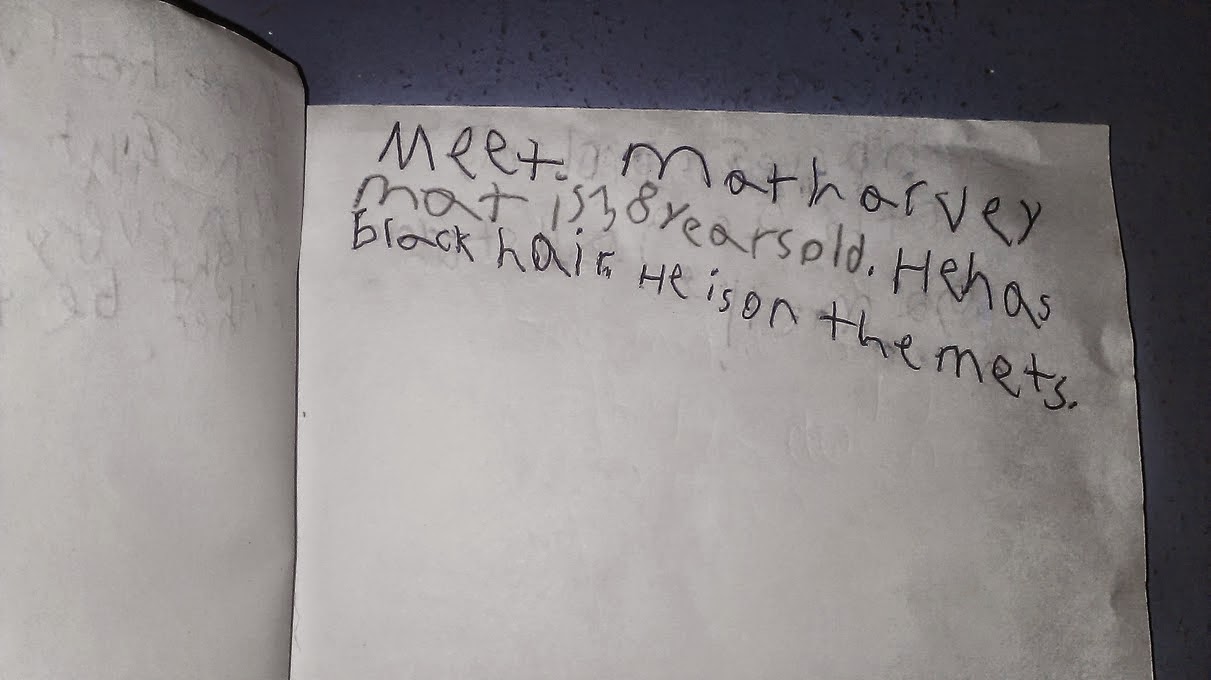 Meet. Mat harvey
mat is 38 years old. He has
black hair. He is on the mets.